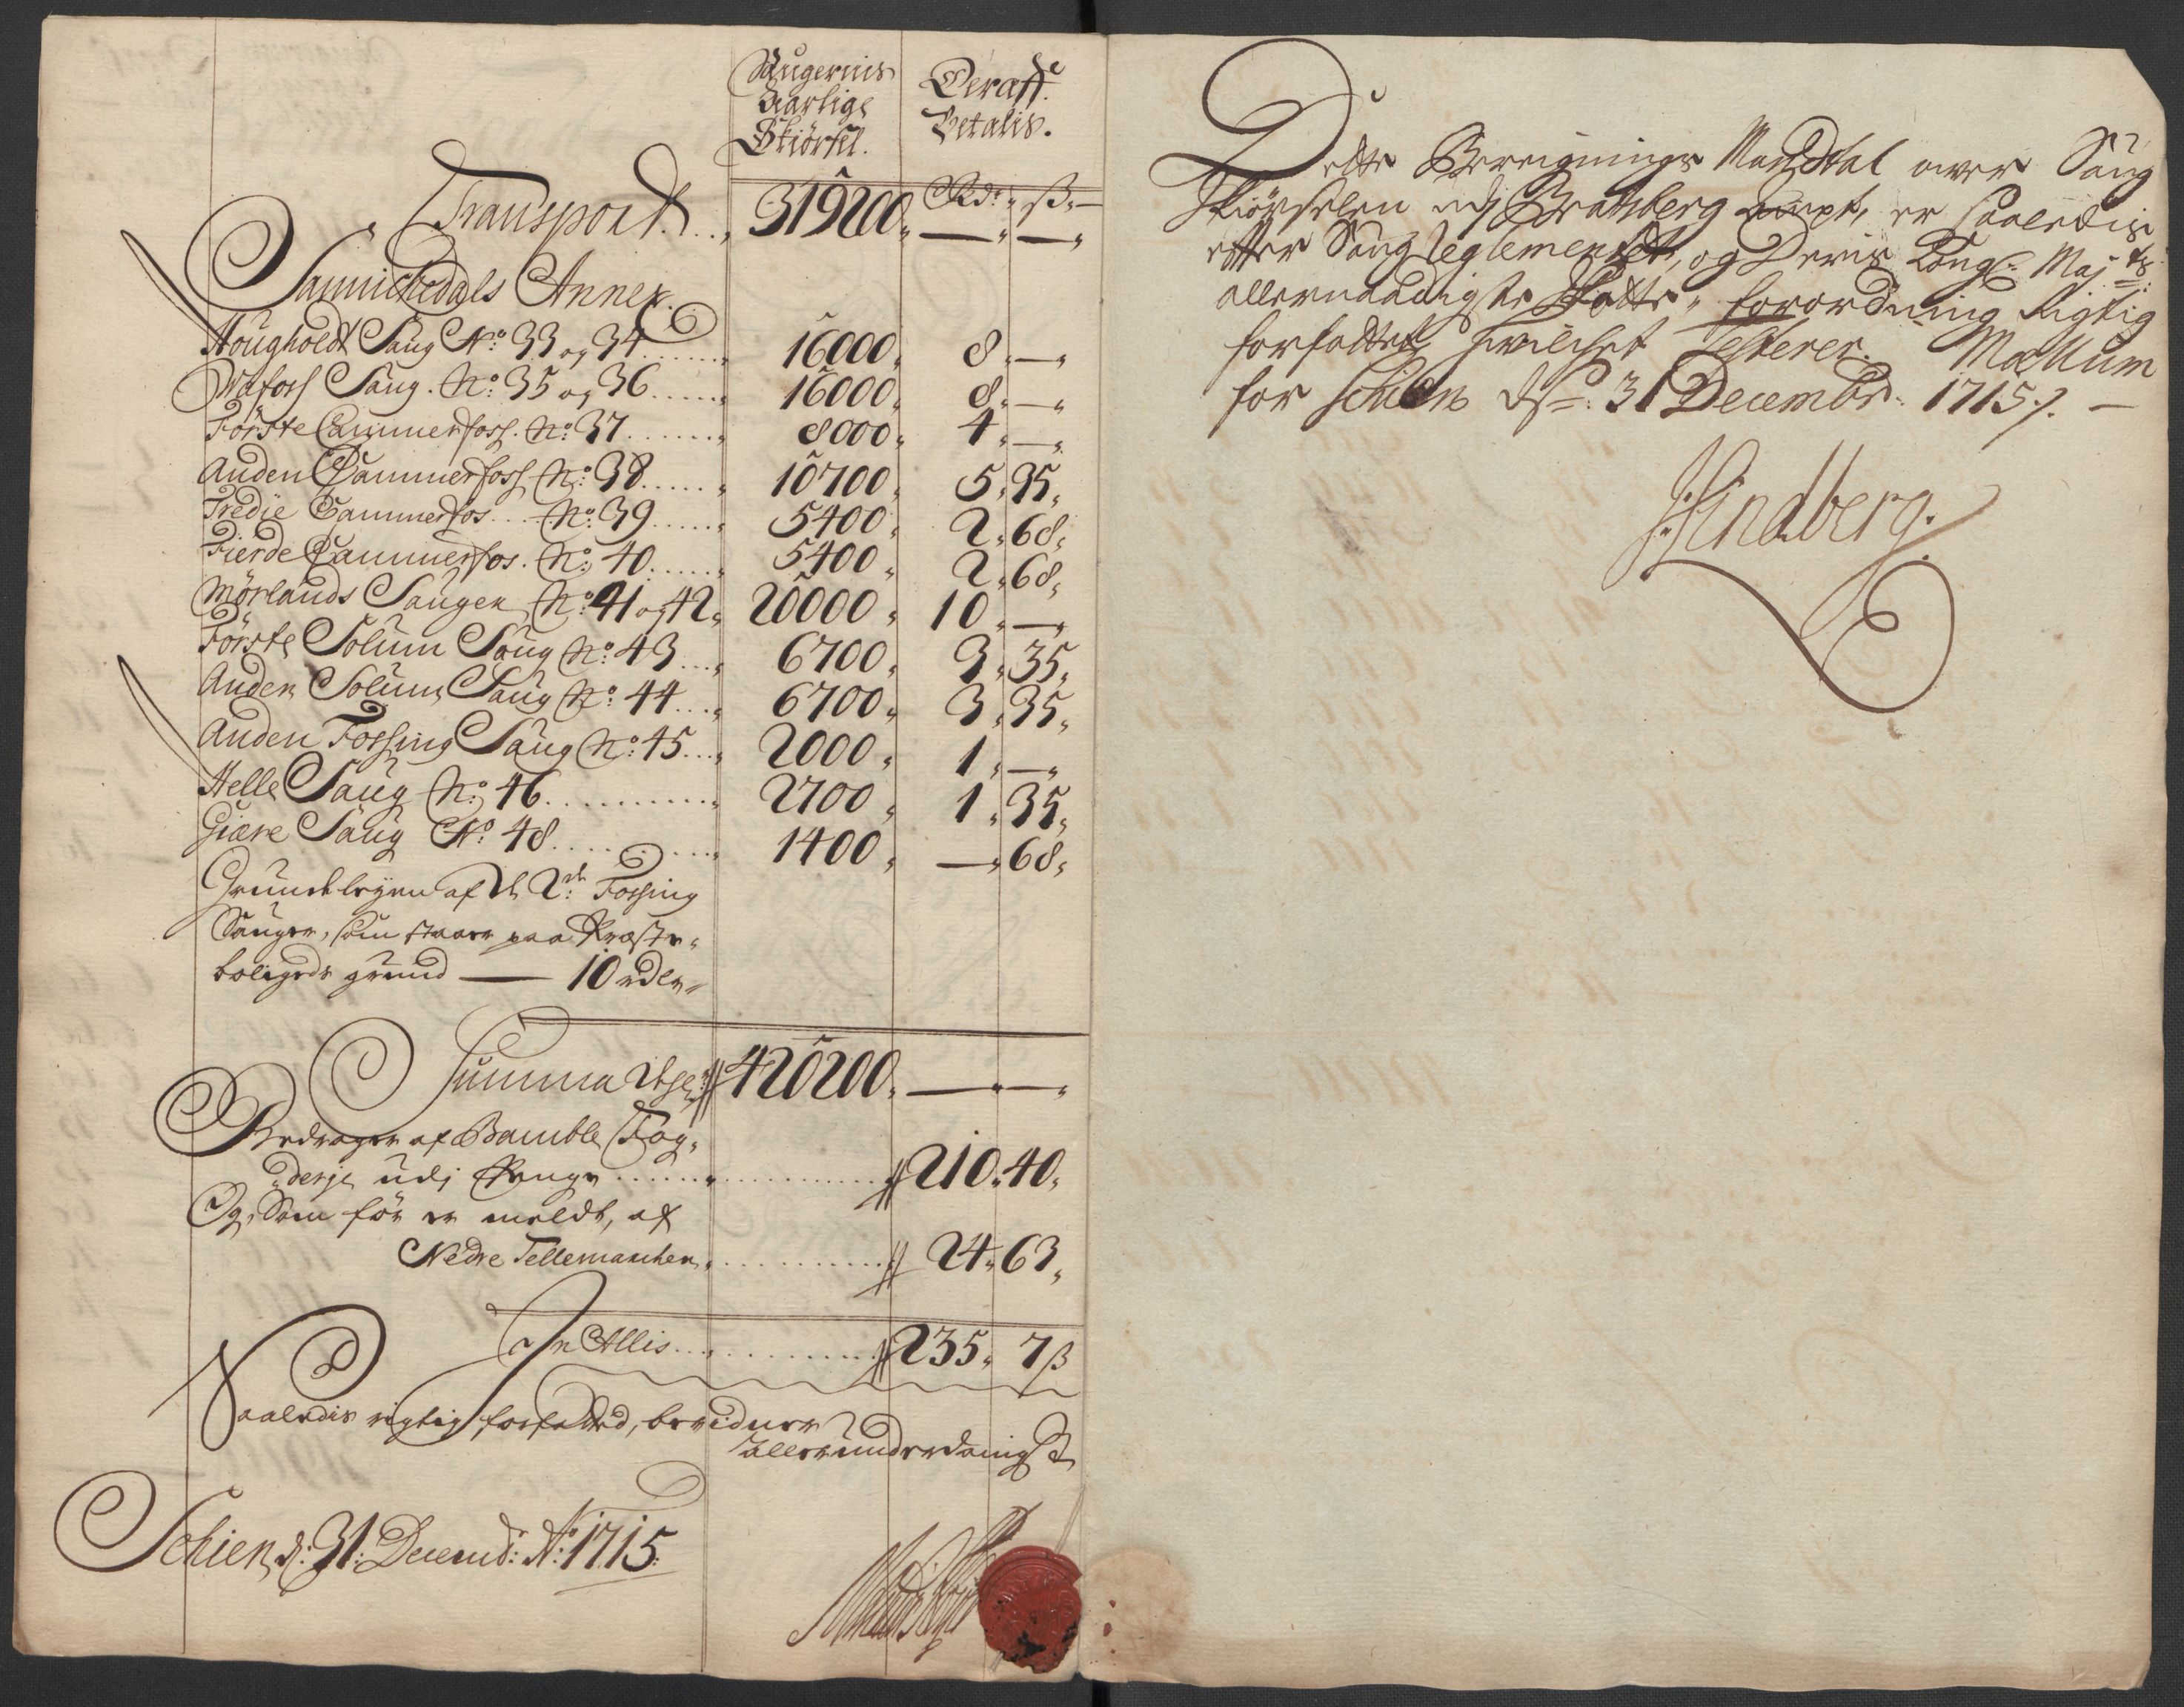 Saugernis Aarlige Skiørsel.
Deraff. Betalis.
Rdr. ß.
Transport. . . 319200 — —
Sannichedals Annex.
Hougholdt Saug No. 33 og 34 . . . . 16000. 8. —
Wafoss Saug. No. 35 og 36 . . . . 16000. 8. —
Første Cammerfoss. No. 37 . . . . 8000. 4. —
Anden Cammerfoss No. 38 . . . . 10700. 5. 35.
Tredie Cammerfos . . . No. 39 . . . . 5400. 2. 68.
Fierde Cammerfos. No. 40 . . . . 5400. 2. 68.
Mörlands Saugen No. 41 og 42. 20000. 10. —
Förste Solum Saug No. 43 . . . 6700. 3. 35.
Anden Solum Saug No. 44 . . . 6700. 3. 35.
Anden Fossing Saug No. 45 . . . 2000. 1. —
Helle Saug No. 46 . . . . . . 2700. 1. 35.
Giære Saug No. 48 . . . . . . 1400. — 68.
Grundleyen af de 2de Fossing
Sauger, som staaer paa Præste-
boligeds grund — 10 rdlr
Summa 420200. — —
Bedrager af Bamble Fog-
derje udj Penge . . . . . . 210. 40.
Og, Som før er meldt, af
Nedre Tellemarchen . . . . . . 24. 63.
In Allis . . . . . . 235. 7 ß
Saaledis rigtig forfatted, bevidner
allerunderdanigst
Schien d: 31: Decemb: Ao: 1715.
Dette Beregnings Mandtal over Saug
Skiørselen udj Bratsberg Ampt, er saaledis
efter Saug Reglementet, og Deris Kongl: Maj:ts
allernaadigste Skatte-forordning Rigtig
forfattet hvilchet Testerer. Mællum
for Schien d. 31 Decembr. 1715. —
Hindberg.